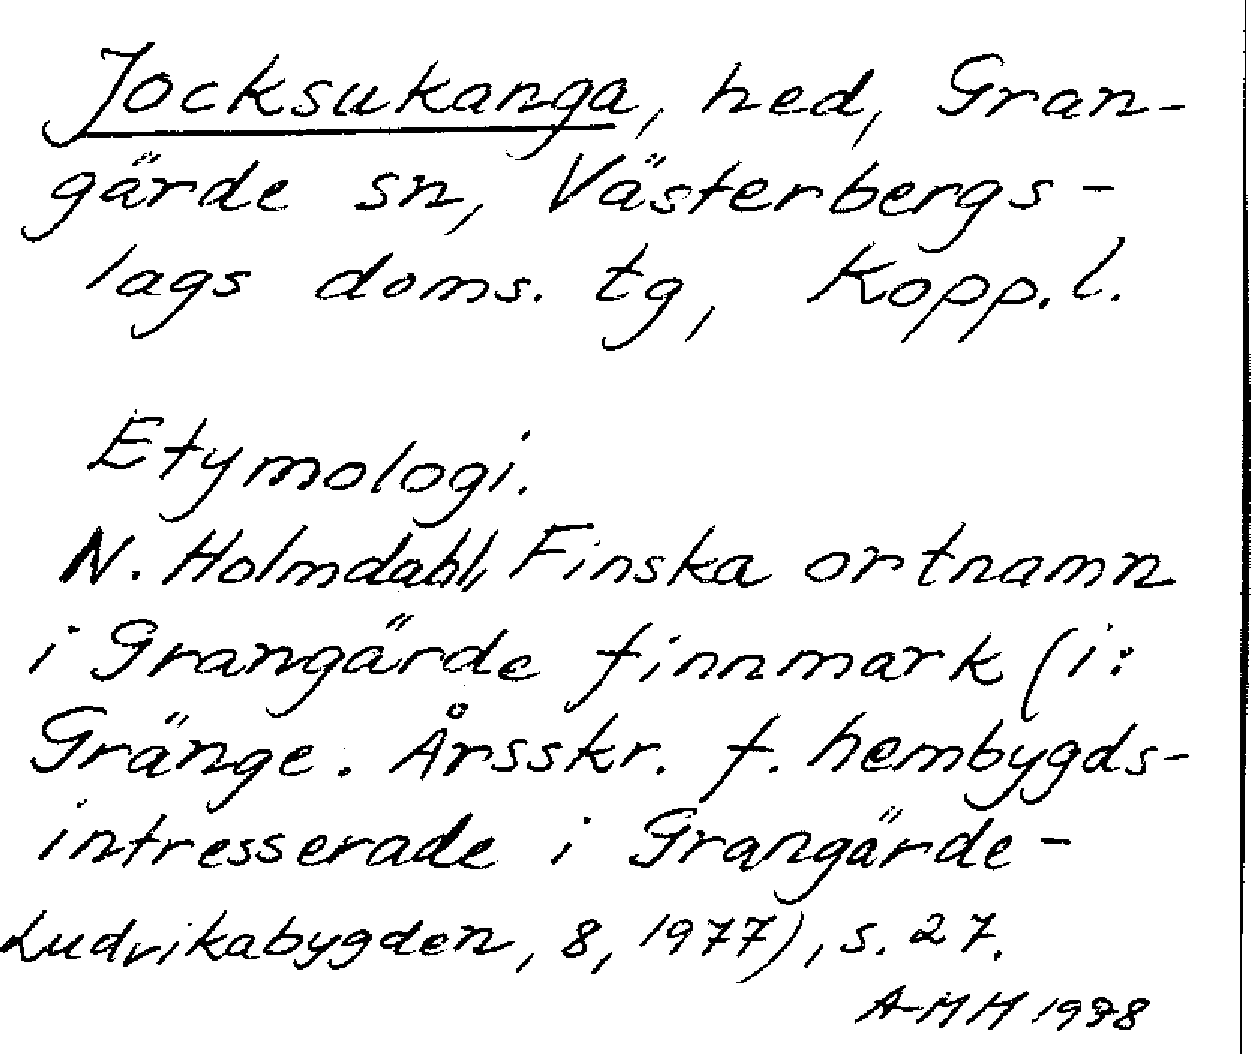 Jocksukanga, hed, Gran-
gärde sn, Västerbergs-
lags doms. tg, Kopp. l.
Etymologi.
N. Holmdahl, Finska ortnamn
i Grangärde finnmark (i:
Gränge. Årsskr. f. hembygds-
intresserade i Grangärde-
Ludvikabygden, 8, 1977), s. 27.
A-MH 1978